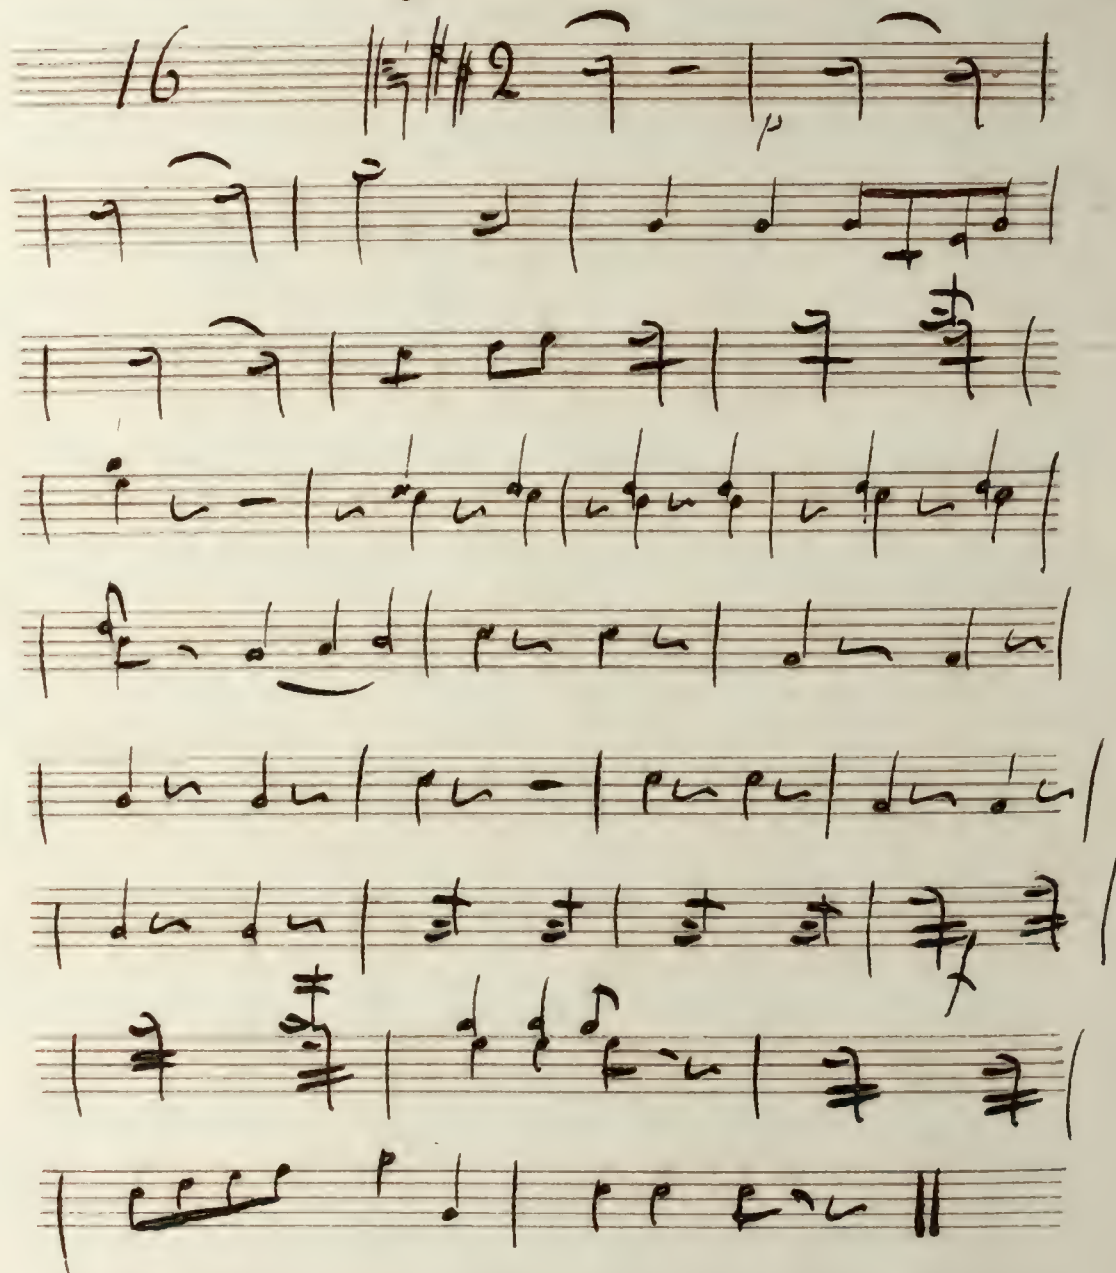 16 2
p
f